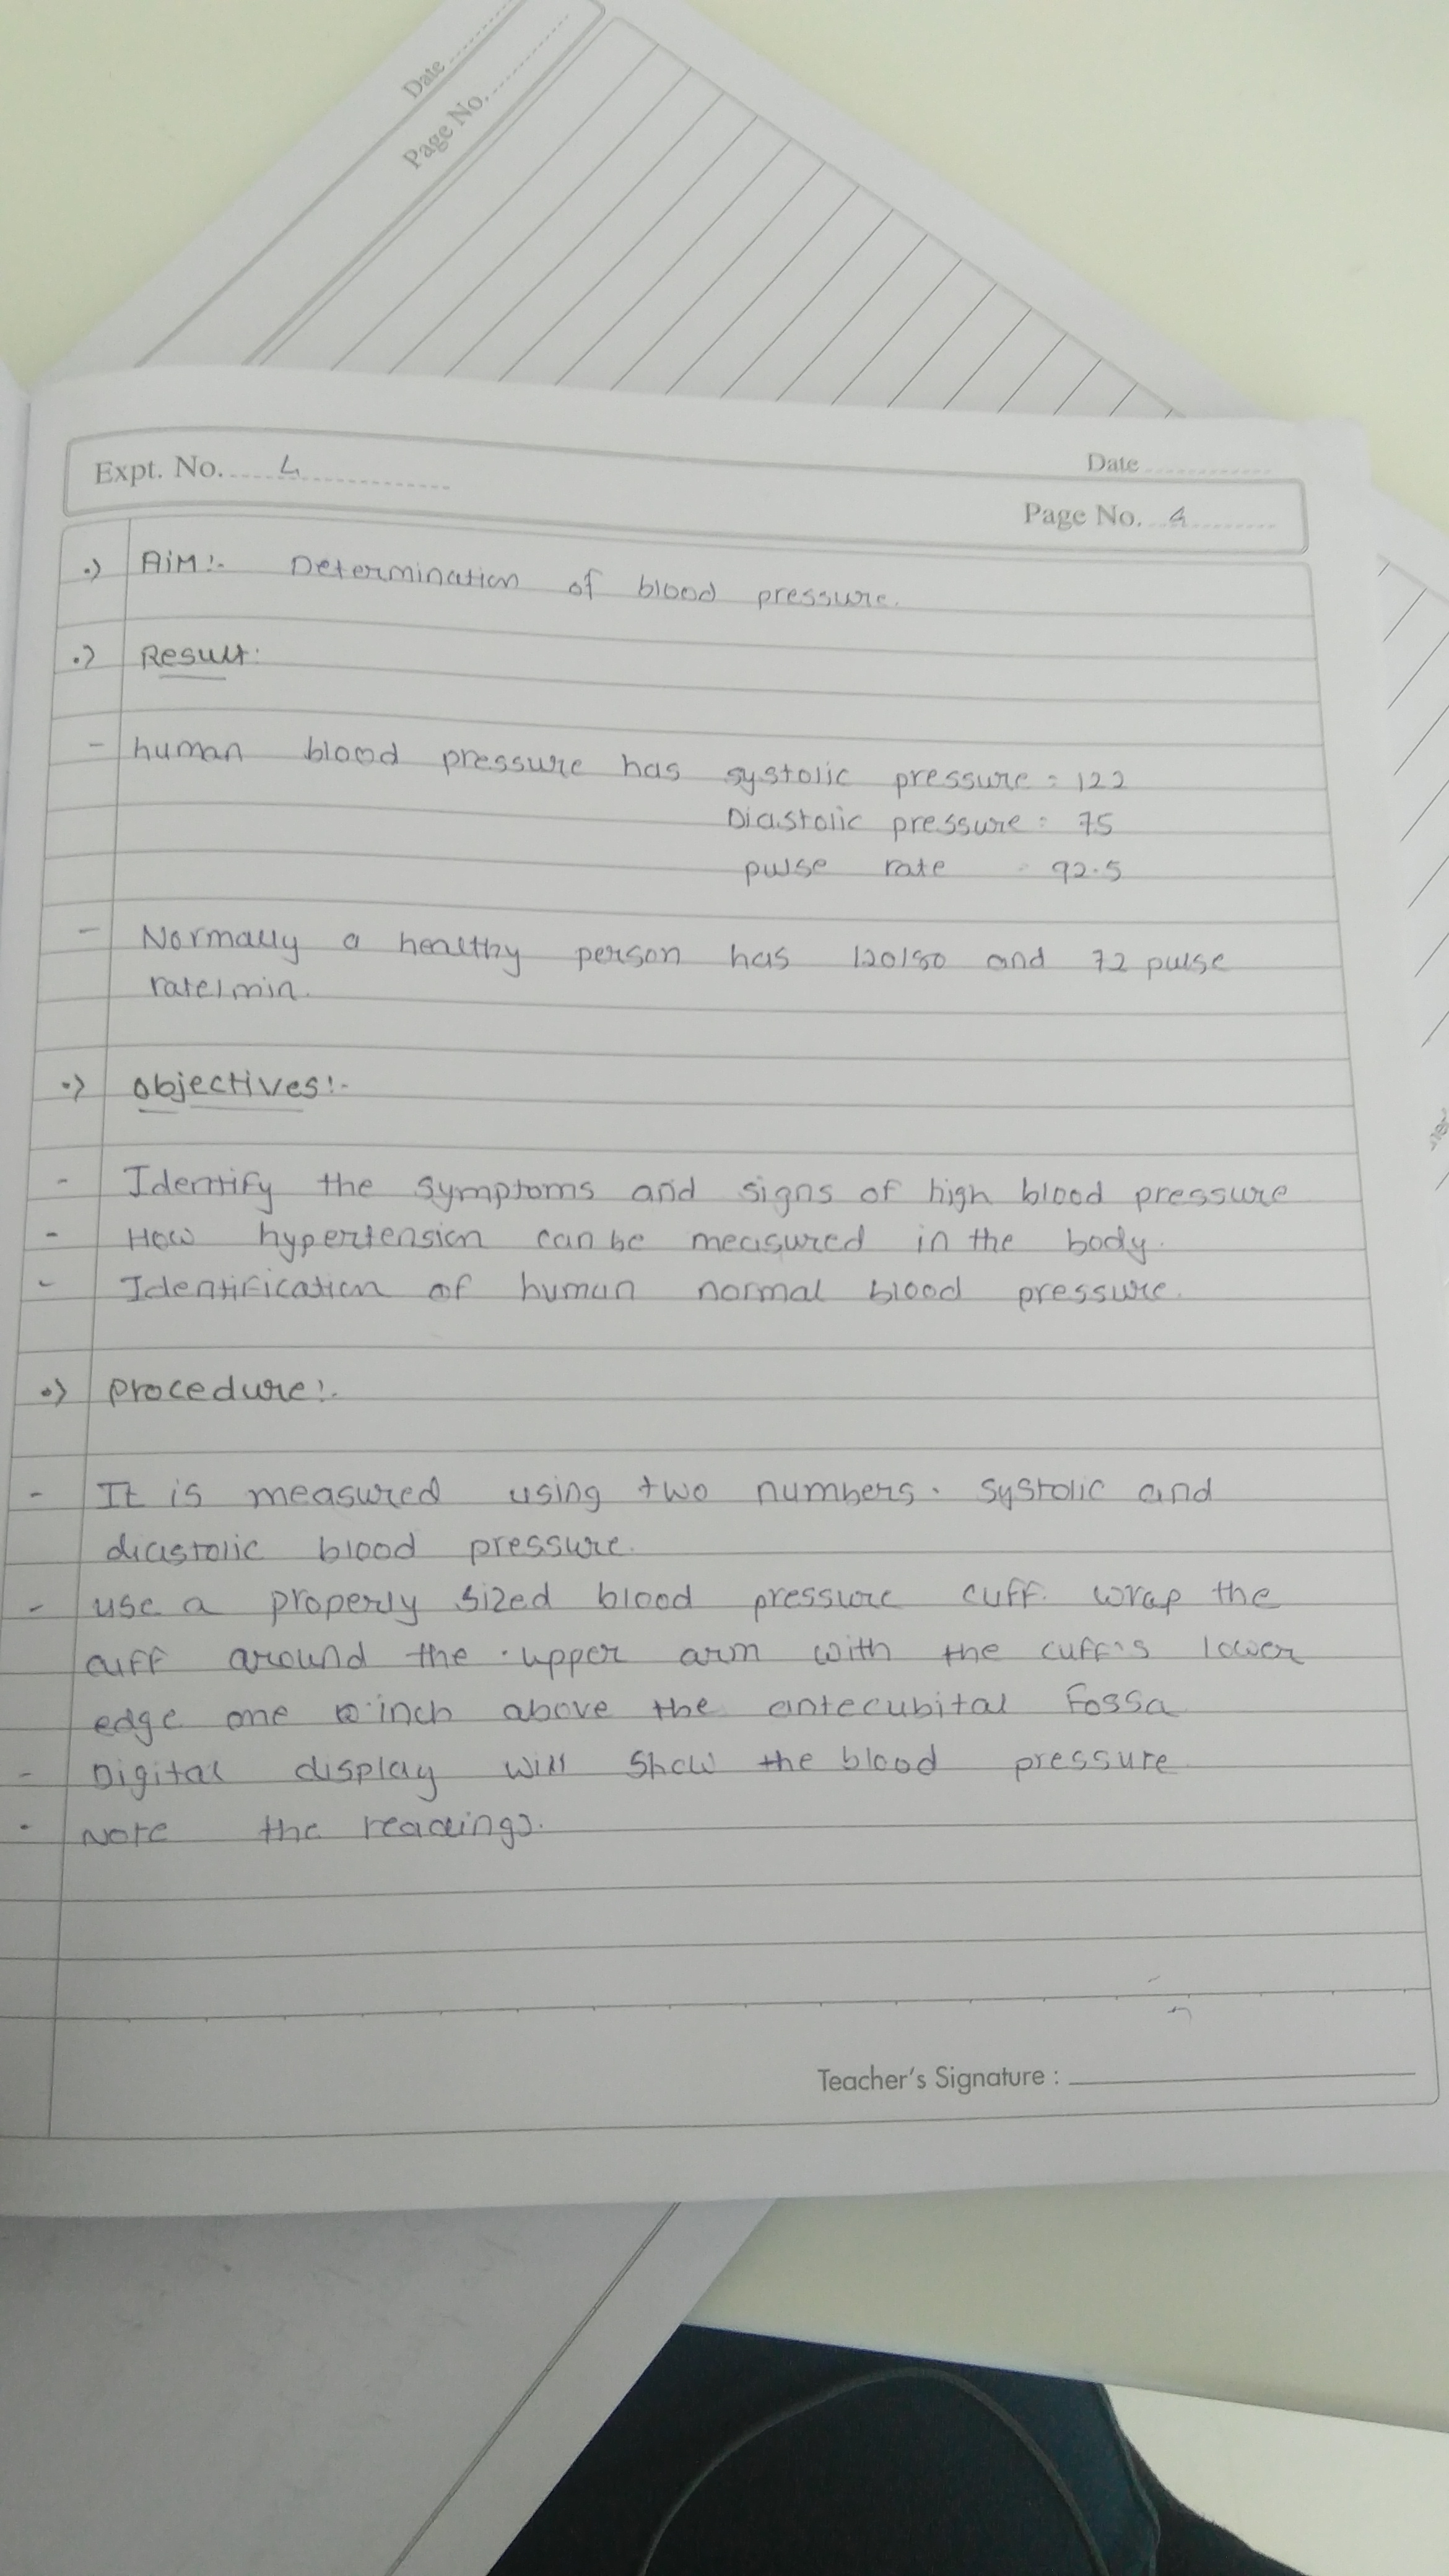 Date
Page No.
Expt. No. 4
Date
Page No. 4
•) AiM:- Determination of blood pressure.
•) Result:
- human blood pressure has systolic pressure = 122
Diastolic pressure = 75
pulse rate = 92.5
- Normally a healthy person has 120/80 and 72 pulse
rate/min.
•) objectives:-
- Identify the symptoms and signs of high blood pressure
- How hypertension can be measured in the body.
- Identification of human normal blood pressure.
•) procedure:-
- It is measured using two numbers. systolic and
diastolic blood pressure.
- use a properly sized blood pressure cuff. wrap the
cuff around the upper arm with the cuff's lower
edge one inch above the antecubital Fossa
- Digital display will show the blood pressure
- Note the readings.
Teacher's Signature :